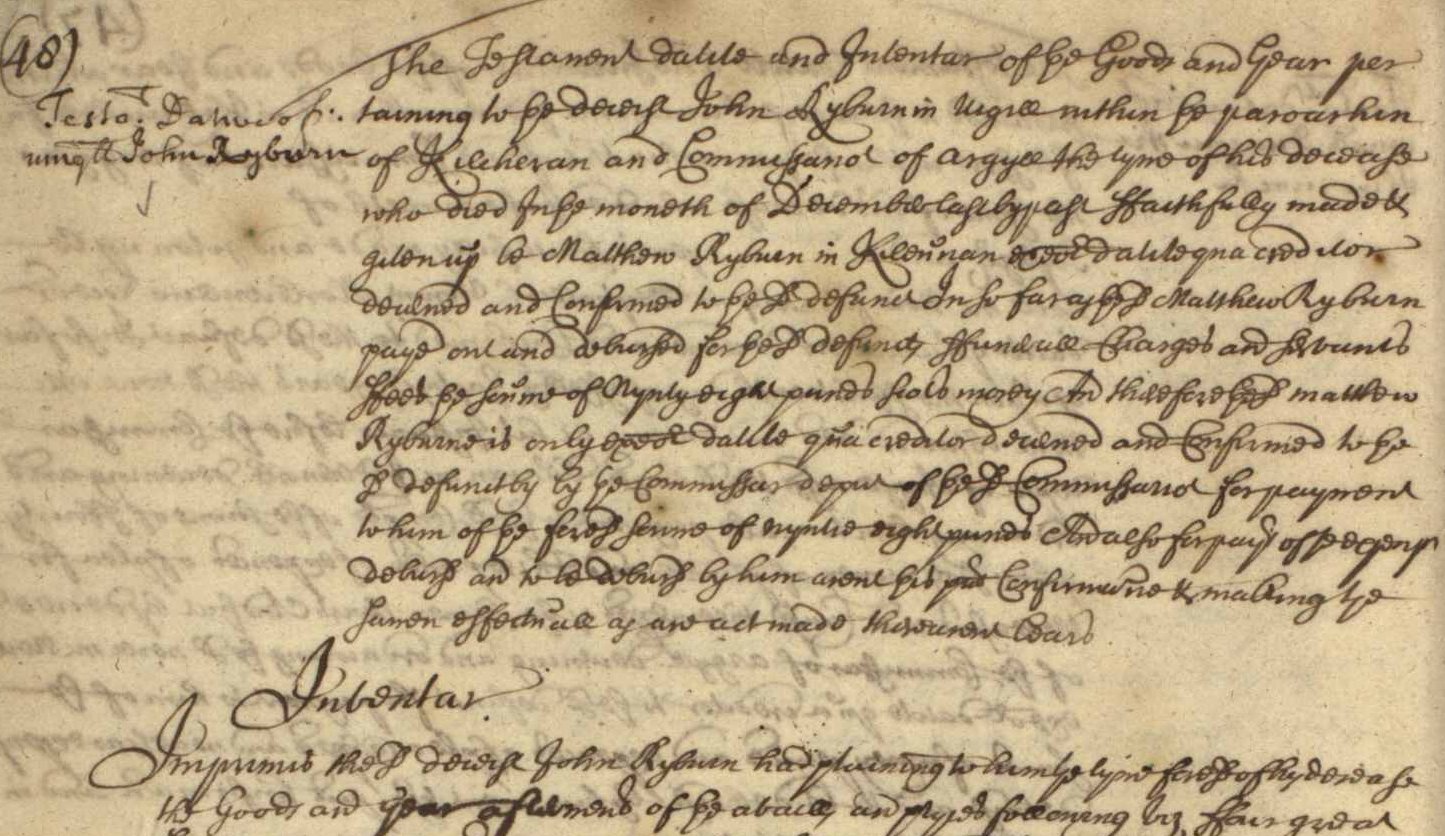 (48)
Testa: Dative of
umqll John Ryburn
The Testament dative and Inventar of þe Goods and Gear per
taining to þe deceist John Ryburn in within þe paroachin
of Kilcheran and Commissariot of Argyll the tyme of his decease
who died In þe moneth of December last bypast ffaithfully made &
given up be Matthew Ryburn in Kileunan exeor dative qua creditor
decerned and Confirmed to þe sd defunct In so far as þe sd Matthew Ryburn
payed out and debursed for þe sd defuncts ffunerall Charges and servants
ffees þe soume of Nynty eight punds scots money And therefore þe sd Matthew
Ryburne is only exeor dative qua creditor decerned and Confirmed to þe
sd defunct by þe Commissar deput of þe sd Commissariot for payment
to him of þe foresd soume of nyntie eight punds And also for payt of þe expenss
debursd and to be debursd by him anent þis pnt Confirmatne & making þe
samen effectuall as ane act made thereanent bears
Inventar
Imprimis the sd deceist John Ryburn had pteining to him þe tyme foresd of his decease
the Goods and Gear afterment of þe availl and pryces following viz ffour great